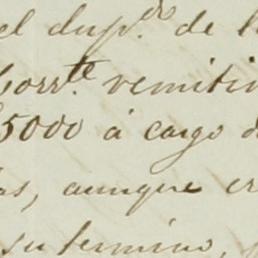 el dup.do de l
Corr.te remitir
5000 á cargo d
as, aunque er
su termino,